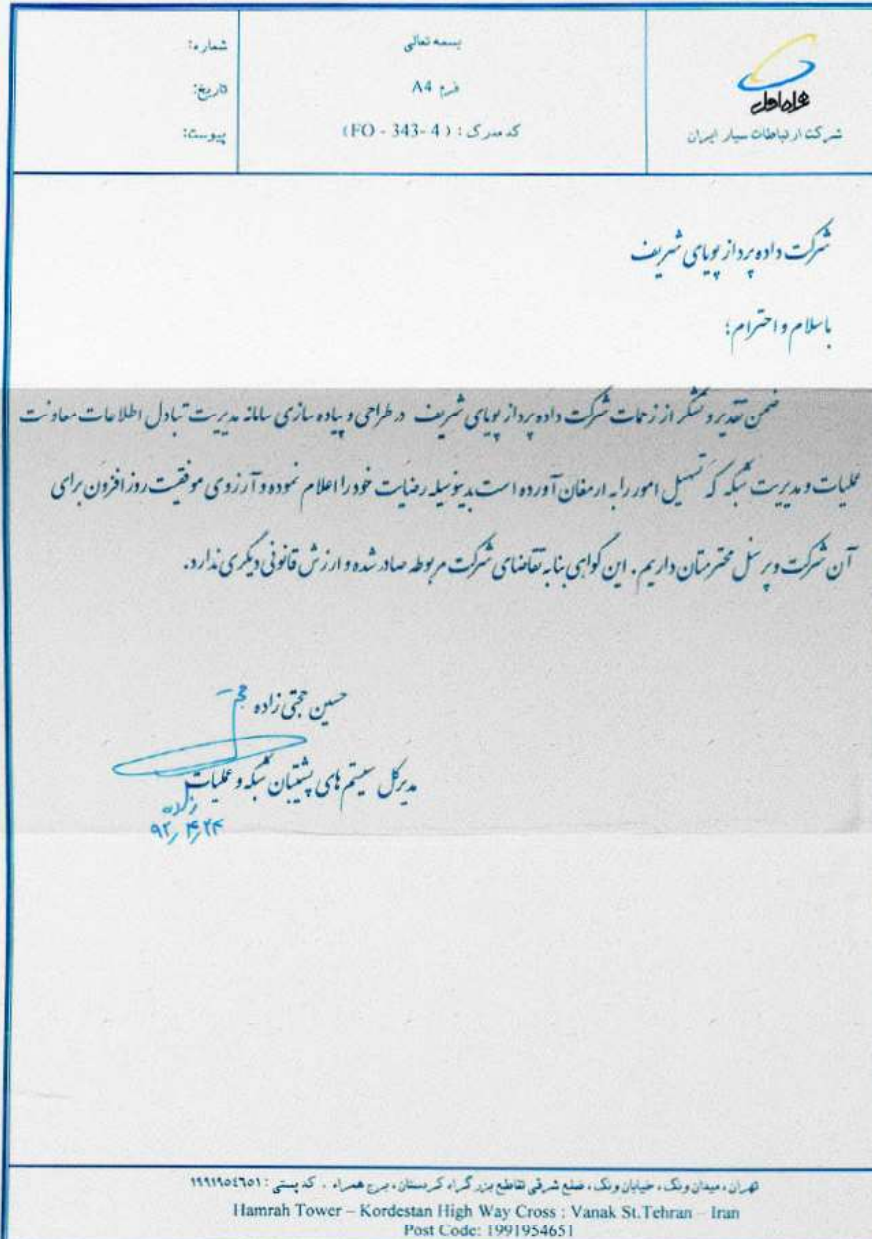 همراه اول
شرکت ارتباطات سیار ایران
بسمه تعالی
فرم A4
کد مدرک : ( FO - 343- 4)
شماره:
تاریخ:
پیوست:
شرکت داده پرداز پویای شریف
باسلام و احترام؛
ضمن تقدیر و تشکر از زحمات شرکت داده پرداز پویای شریف در طراحی و پیاده سازی سامانه مدیریت تبادل اطلاعات معاونت
عملیات و مدیریت شبکه که تسهیل امور را به ارمغان آورده است بدینوسیله رضایت خود را اعلام نموده و آرزوی موفقیت روز افزون برای
آن شرکت و پرسنل محترمتان داریم. این گواهی بنا به تقاضای شرکت مربوطه صادر شده و ارزش قانونی دیگری ندارد.
حسین حجتی زاده
مدیرکل سیستم های پشتیبان شبکه و عملیات
۹۲٫۴٫۲۴
تهران، میدان ونک، خیابان ونک، ضلع شرقی تقاطع بزرگراه کردستان، برج همراه . کد پستی : ۱۹۹۱۹۵۴۶۵۱
Hamrah Tower – Kordestan High Way Cross ; Vanak St.Tehran – Iran
Post Code: 1991954651